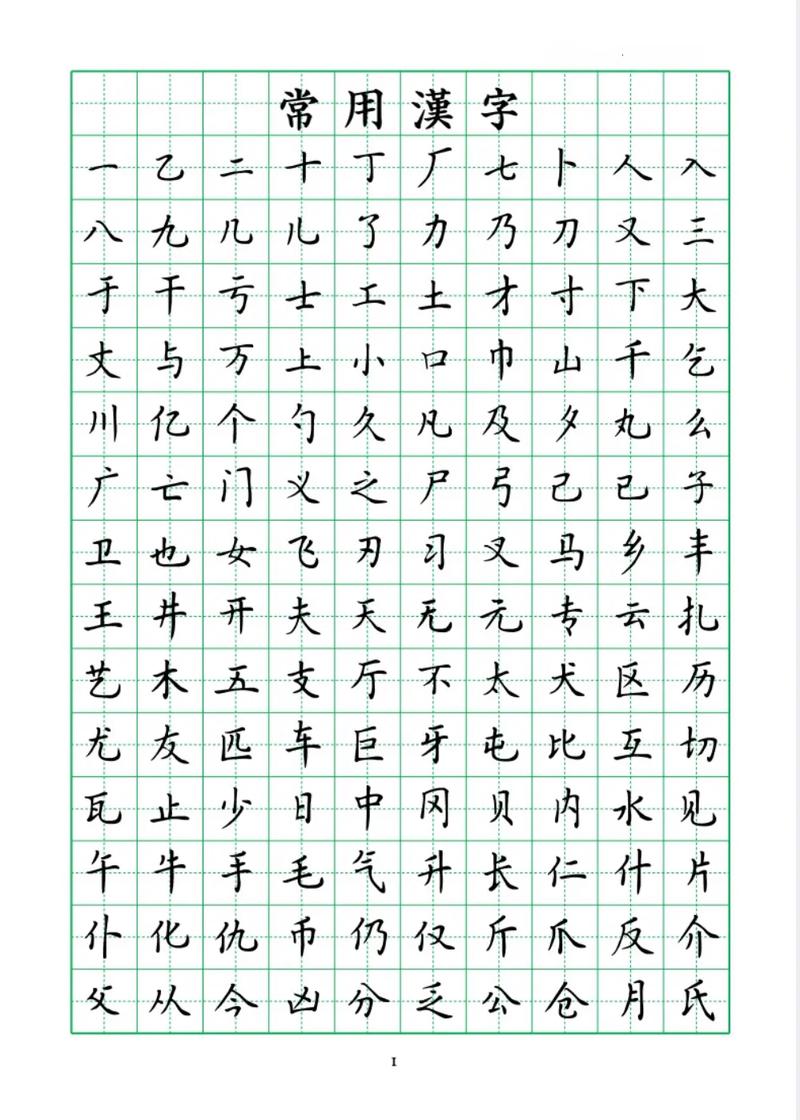 常用漢字
一乙二十丁厂七卜人入
八九几儿了力乃刀又三
于干亏士工土才寸下大
丈与万上小口巾山千乞
川亿个勺久凡及夕丸么
广亡门义之尸弓己已子
卫也女飞刃习叉马乡丰
王井开夫天无元专云扎
艺木五支厅不太犬区历
尤友匹车巨牙屯比互切
瓦止少日中冈贝内水见
午牛手毛气升长仁什片
仆化仇币仍仅斤爪反介
父从今凶分乏公仓月氏
1